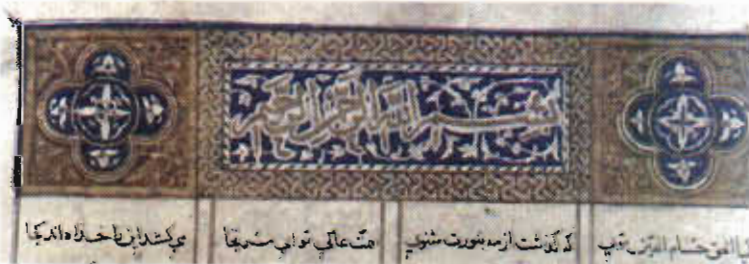 بسم الله الرحمن الرحیم
ای ضیاء الحق حسام الدین توی که گذشت از مه بنورت مثنوی همت عالی تو ای مرتجا می‌کشد این را خدا داند کجا